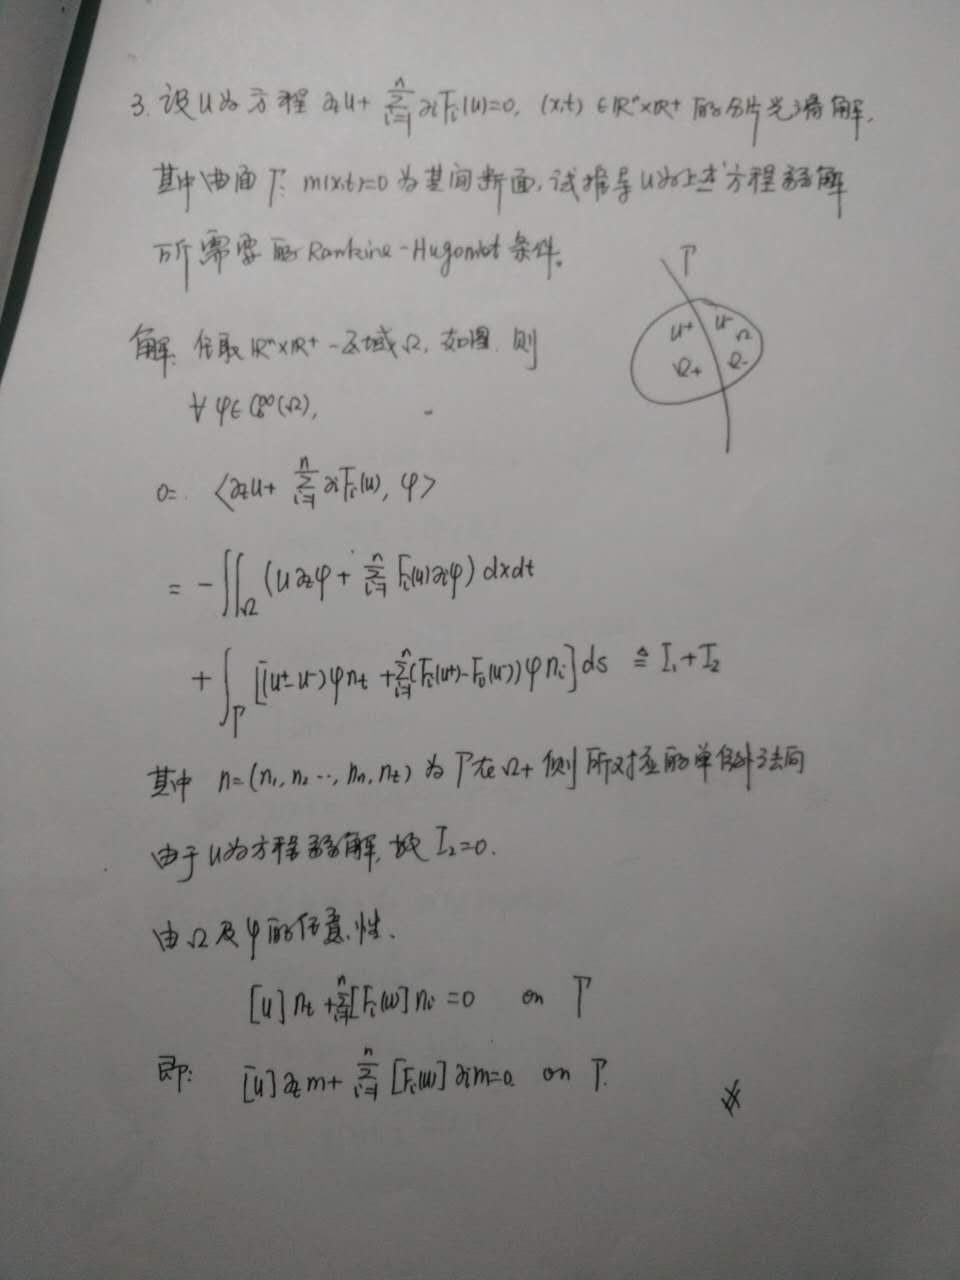 3. 设u为方程 ∂ₜu + ∑ⁿᵢ₌₁ ∂ᵢFᵢ(u)=0, (x,t) ∈ ℝⁿ×ℝ⁺ 的分片光滑解,
其中曲面 Γ: m(x,t)=0 为其间断面, 试推导u为上述方程弱解
所需要的Rankine-Hugoniot条件。
Γ
u⁺ u⁻ Ω
Ω₊ Ω₋
解: 任取 ℝⁿ×ℝ⁺ 一区域Ω, 如图, 则
∀ φ∈C₀^∞(Ω),
0 = ⟨∂ₜu + ∑ⁿᵢ₌₁ ∂ᵢFᵢ(u), φ⟩
= -∬_Ω (u∂ₜφ + ∑ⁿᵢ₌₁ Fᵢ(u)∂ᵢφ) dxdt
+ ∫_Γ [(u⁺-u⁻)φnₜ + ∑ⁿᵢ₌₁(Fᵢ(u⁺)-Fᵢ(u⁻))φnᵢ] ds ≜ I₁+I₂
其中 n=(n₁, n₂ ⋯, nₙ, nₜ) 为Γ在Ω₊侧所对应的单位外法向
由于u为方程弱解, 故 I₂=0.
由Ω及φ的任意性.
[u]nₜ + ∑ⁿᵢ₌₁[Fᵢ(u)]nᵢ = 0 on Γ
即: [u]∂ₜm + ∑ⁿᵢ₌₁ [Fᵢ(u)]∂ᵢm=0 on Γ.